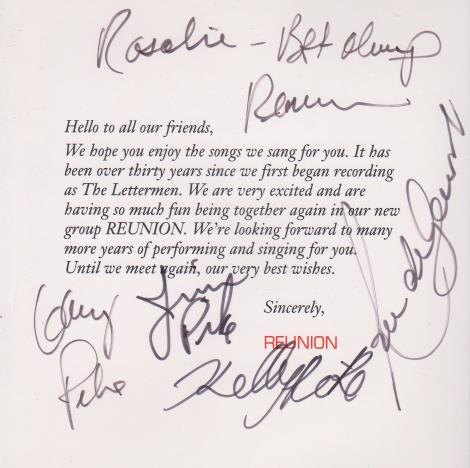 Rosalie - Best Always
Reunion
Hello to all our friends,
We hope you enjoy the songs we sang for you. It has
been over thirty years since we first began recording
as The Lettermen. We are very excited and are
having so much fun being together again in our new
group REUNION. We're looking forward to many
more years of performing and singing for you.
Until we meet again, our very best wishes.
Sincerely,
REUNION
Jim
Pike
Gary
Pike